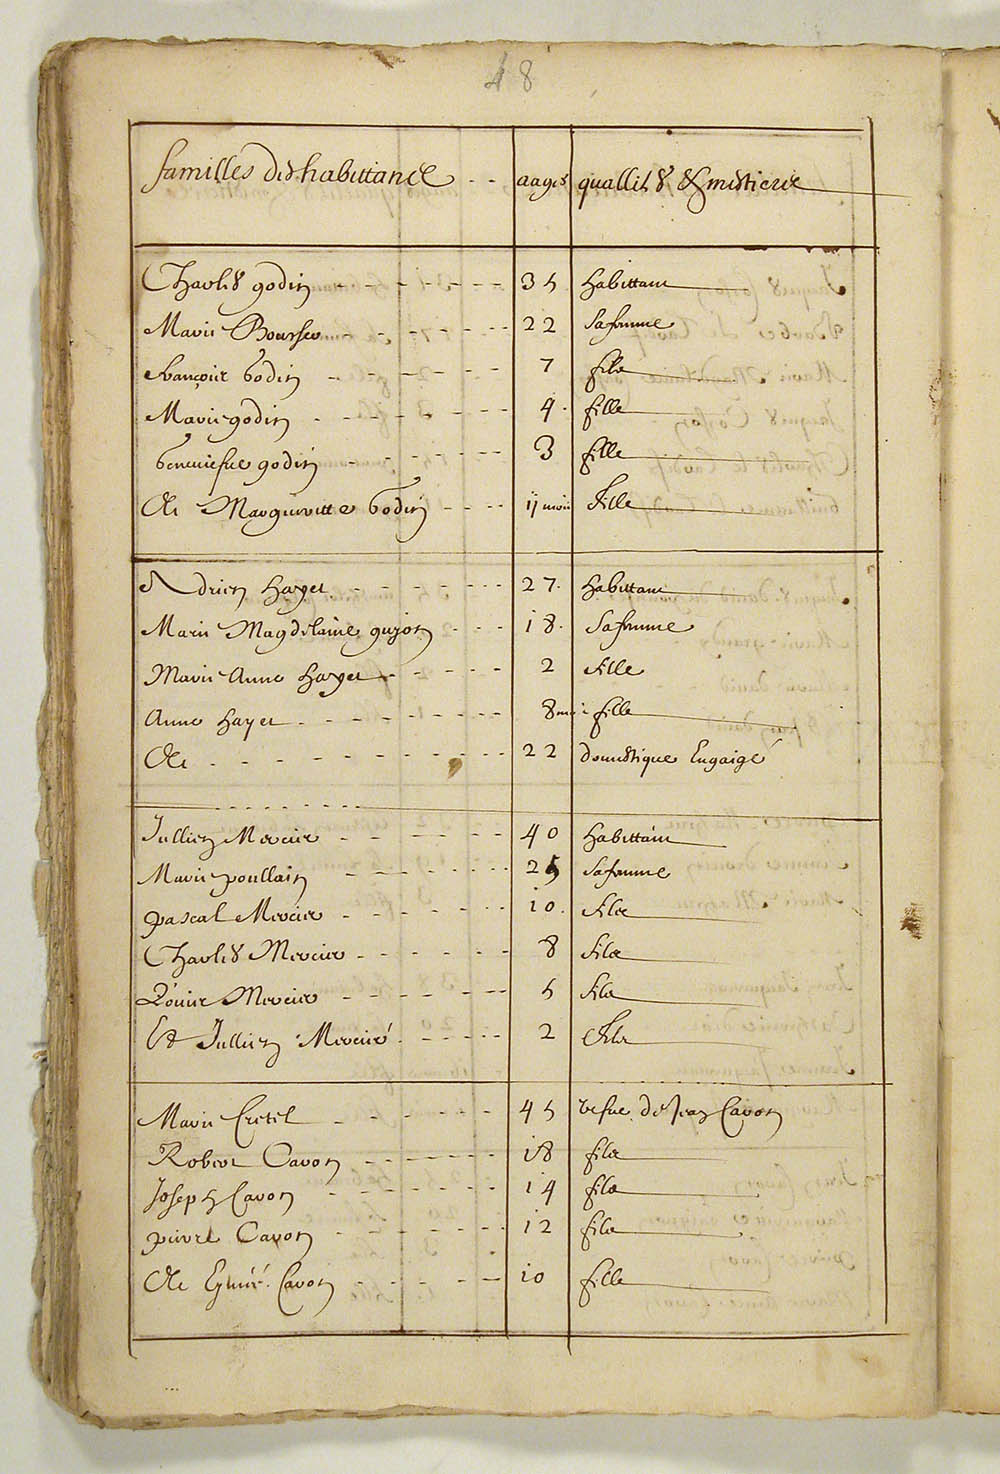 48
familles des habittans aages quallites & mestiers
Charles godin 35 habittant
Marie Boucher 22 sa femme
françois Godin 7 filz
Marie godin 4 fille
Geneviefue godin 3 fille
Et Margueritte Godin ij mois fille
Adrien hayet 27 habittant
Marie Magdelaine guyon 18 sa femme
Marie Anne hayet 2 fille
Anne hayet 8 mois fille
Et 22 domestique Engaigé
Jullien Mercier 40 habittant
Marie poullain 25 sa femme
pascal Mercier 10 filz
Charles Mercier 8 filz
Louis Mercier 5 filz
Et Jullien Mercier 2 filz
Marie Cretel 45 vefue de Jean Cavon
Robert Cavon 18 filz
Joseph Cavon 14 filz
pierre Cavon 12 filz
Et Cavon 10 fille